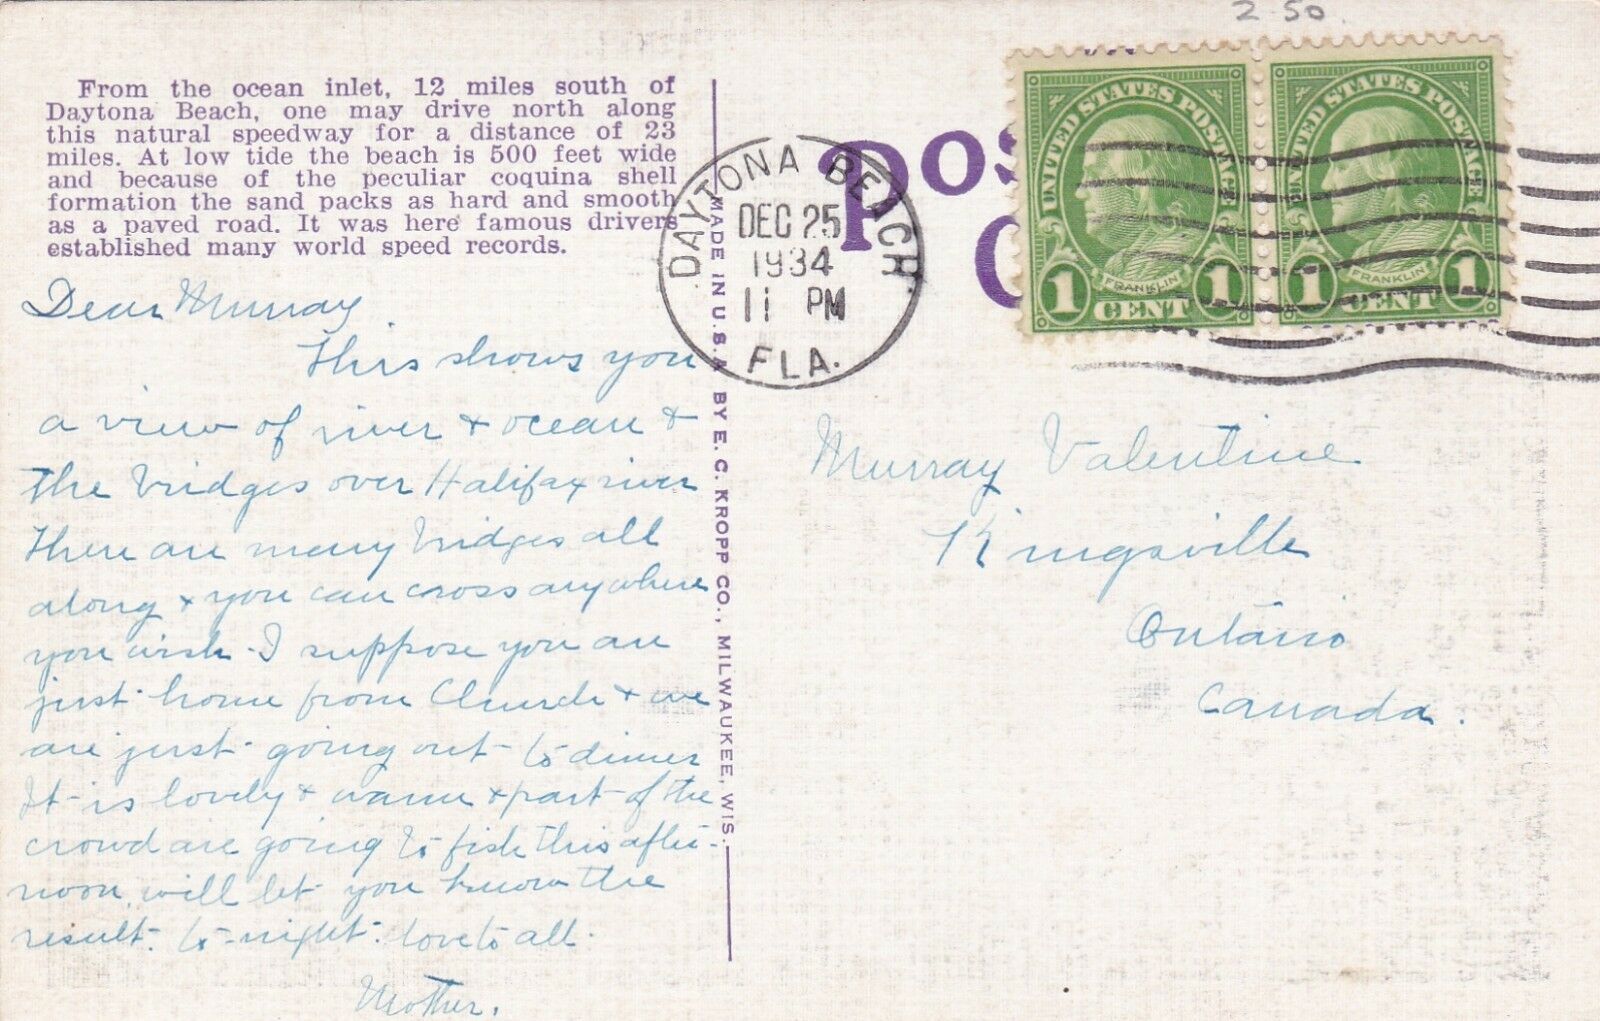 2.50
From the ocean inlet, 12 miles south of
Daytona Beach, one may drive north along
this natural speedway for a distance of 23
miles. At low tide the beach is 500 feet wide
and because of the peculiar coquina shell
formation the sand packs as hard and smooth
as a paved road. It was here famous drivers
established many world speed records.
Dear Murray
This shows you
a view of river & ocean &
the bridges over Halifax river
There are many bridges all
along & you can cross anywhere
you wish. I suppose you are
just home from Church & we
are just going out to dinner
It is lovely & warm & part of the
crowd are going to fish this after-
noon, will let you know the
result to-night. love to all.
Mother.
MADE IN U.S.A. BY E. C. KROPP CO., MILWAUKEE, WIS.
POS
C
DAYTONA BEACH
DEC 25
1934
11 PM
FLA.
UNITED STATES POSTAGE
FRANKLIN
1 CENT 1
UNITED STATES POSTAGE
FRANKLIN
1 CENT 1
Murray Valentine
Kingsville
Ontario
Canada.